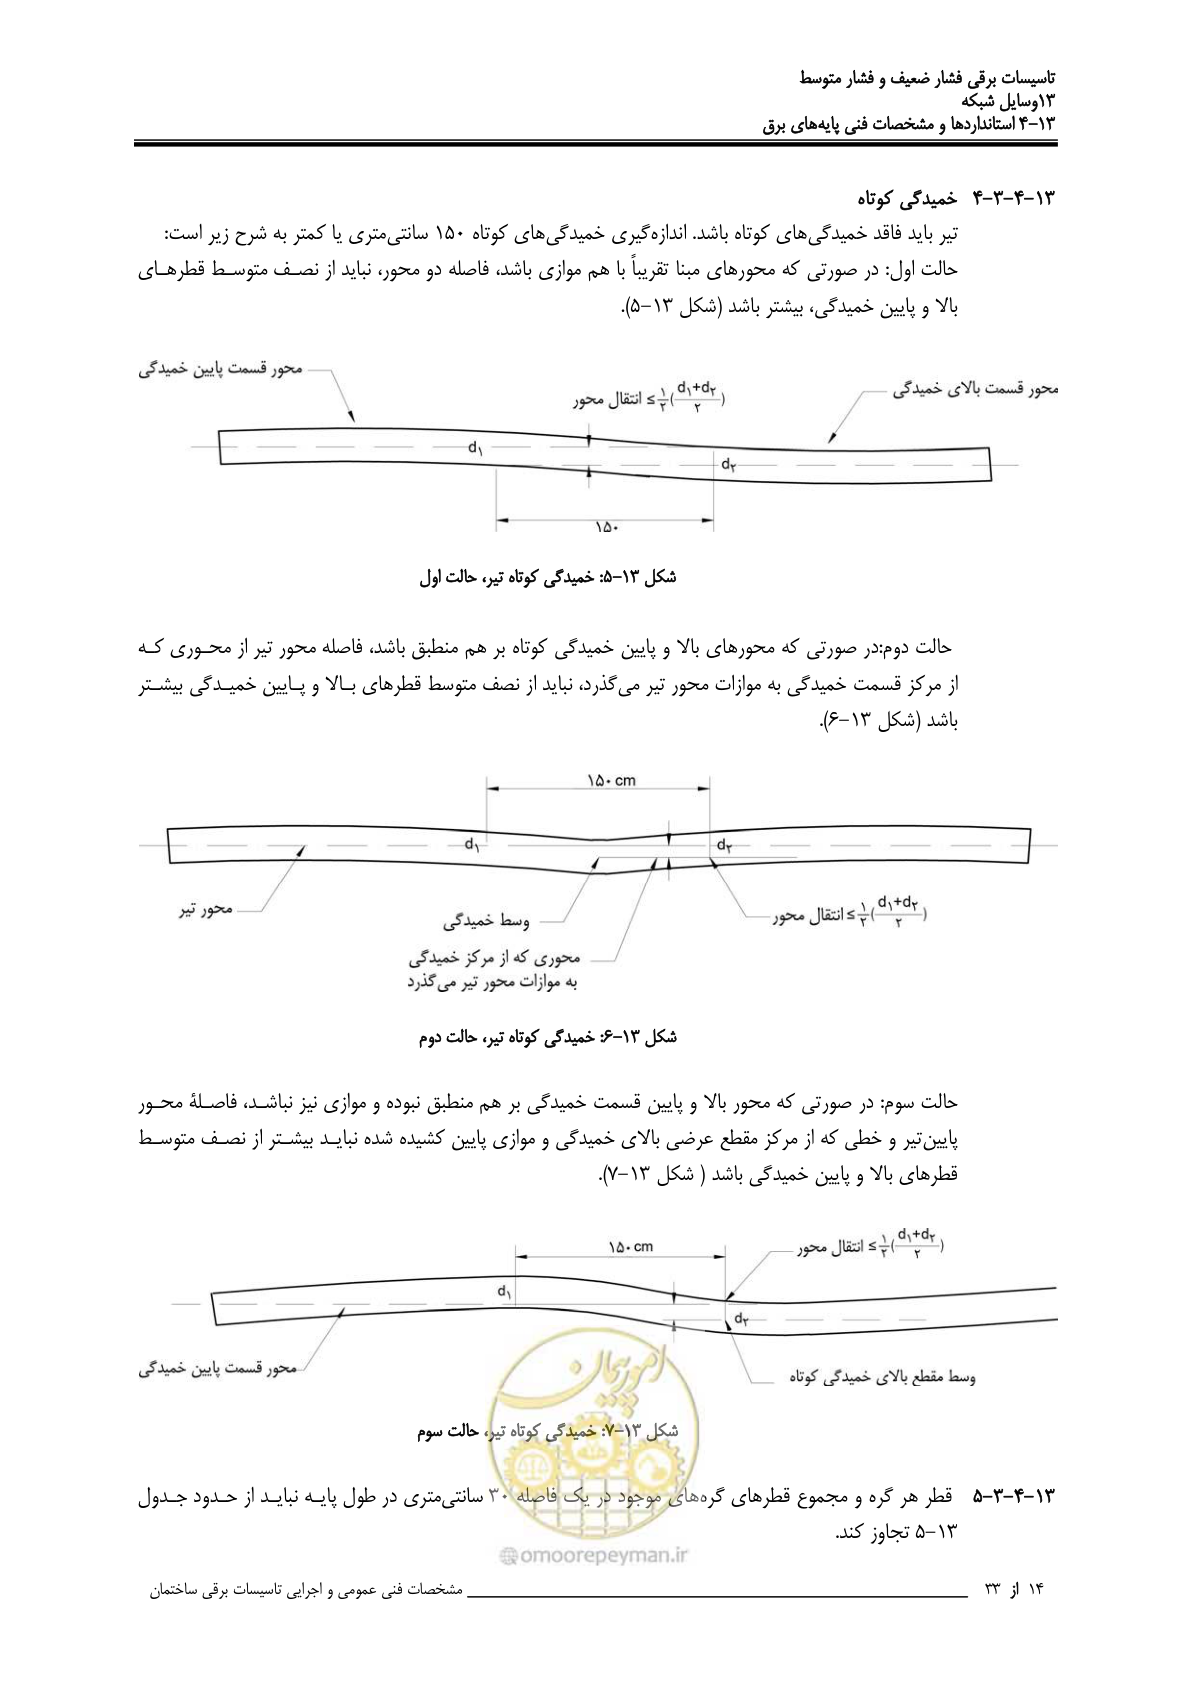 تاسیسات برقی فشار ضعیف و فشار متوسط
۱۳وسایل شبکه
۱۳-۴ استانداردها و مشخصات فنی پایه‌های برق
۱۳-۴-۳-۴ خمیدگی کوتاه
تیر باید فاقد خمیدگی‌های کوتاه باشد. اندازه‌گیری خمیدگی‌های کوتاه ۱۵۰ سانتی‌متری یا کمتر به شرح زیر است:
حالت اول: در صورتی که محورهای مبنا تقریباً با هم موازی باشد، فاصله دو محور، نباید از نصف متوسط قطرهای
بالا و پایین خمیدگی، بیشتر باشد (شکل ۱۳-۵).
محور قسمت پایین خمیدگی
محور قسمت بالای خمیدگی
انتقال محور ≤ ۱/۲ (d۱+d۲ / ۲)
d۱
d۲
۱۵۰
شکل ۱۳-۵: خمیدگی کوتاه تیر، حالت اول
حالت دوم:در صورتی که محورهای بالا و پایین خمیدگی کوتاه بر هم منطبق باشد، فاصله محور تیر از محوری که
از مرکز قسمت خمیدگی به موازات محور تیر می‌گذرد، نباید از نصف متوسط قطرهای بالا و پایین خمیدگی بیشتر
باشد (شکل ۱۳-۶).
۱۵۰ cm
d۱
d۲
محور تیر
وسط خمیدگی
انتقال محور ≤ ۱/۲ (d۱+d۲ / ۲)
محوری که از مرکز خمیدگی
به موازات محور تیر می‌گذرد
شکل ۱۳-۶: خمیدگی کوتاه تیر، حالت دوم
حالت سوم: در صورتی که محور بالا و پایین قسمت خمیدگی بر هم منطبق نبوده و موازی نیز نباشد، فاصلهٔ محور
پایین‌تیر و خطی که از مرکز مقطع عرضی بالای خمیدگی و موازی پایین کشیده شده نباید بیشتر از نصف متوسط
قطرهای بالا و پایین خمیدگی باشد ( شکل ۱۳-۷).
۱۵۰ cm
انتقال محور ≤ ۱/۲ (d۱+d۲ / ۲)
d۱
d۲
محور قسمت پایین خمیدگی
وسط مقطع بالای خمیدگی کوتاه
امور پیمان
شکل ۱۳-۷: خمیدگی کوتاه تیر، حالت سوم
۱۳-۴-۳-۵ قطر هر گره و مجموع قطرهای گره‌های موجود در یک فاصله ۳۰ سانتی‌متری در طول پایه نباید از حدود جدول
۱۳-۵ تجاوز کند.
@omoorepeyman.ir
۱۴ از ۳۳ مشخصات فنی عمومی و اجرایی تاسیسات برقی ساختمان